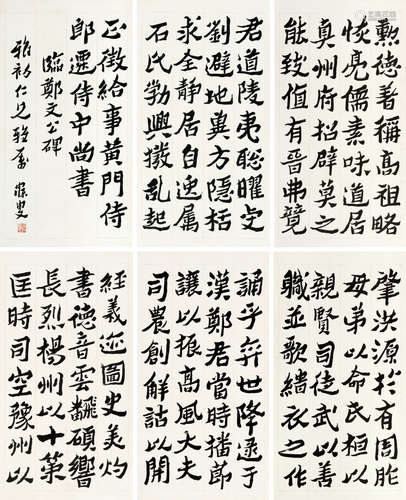 肇洪源於有周胙
母弟以命氏桓以
親賢司徒武以善
職並歌緇衣之作
誦乎弈世降逮于
漢鄭君當時播節
讓以振高風大夫
司農創解詁以開
經義迹圖史美灼
書德音雲翻碩響
長烈楊州以十策
匡時司空豫州以
勳德著稱高祖略
恢亮儒素味道居
真州府招辟莫之
能致值有晉弗競
君道陵夷聰曜虔
劉避地冀方隱括
求全静居自逸属
石氏勃興撥乱起
正徵給事黃門侍
郎遷侍中尚書
臨鄭文公碑
雅初仁兄雅屬